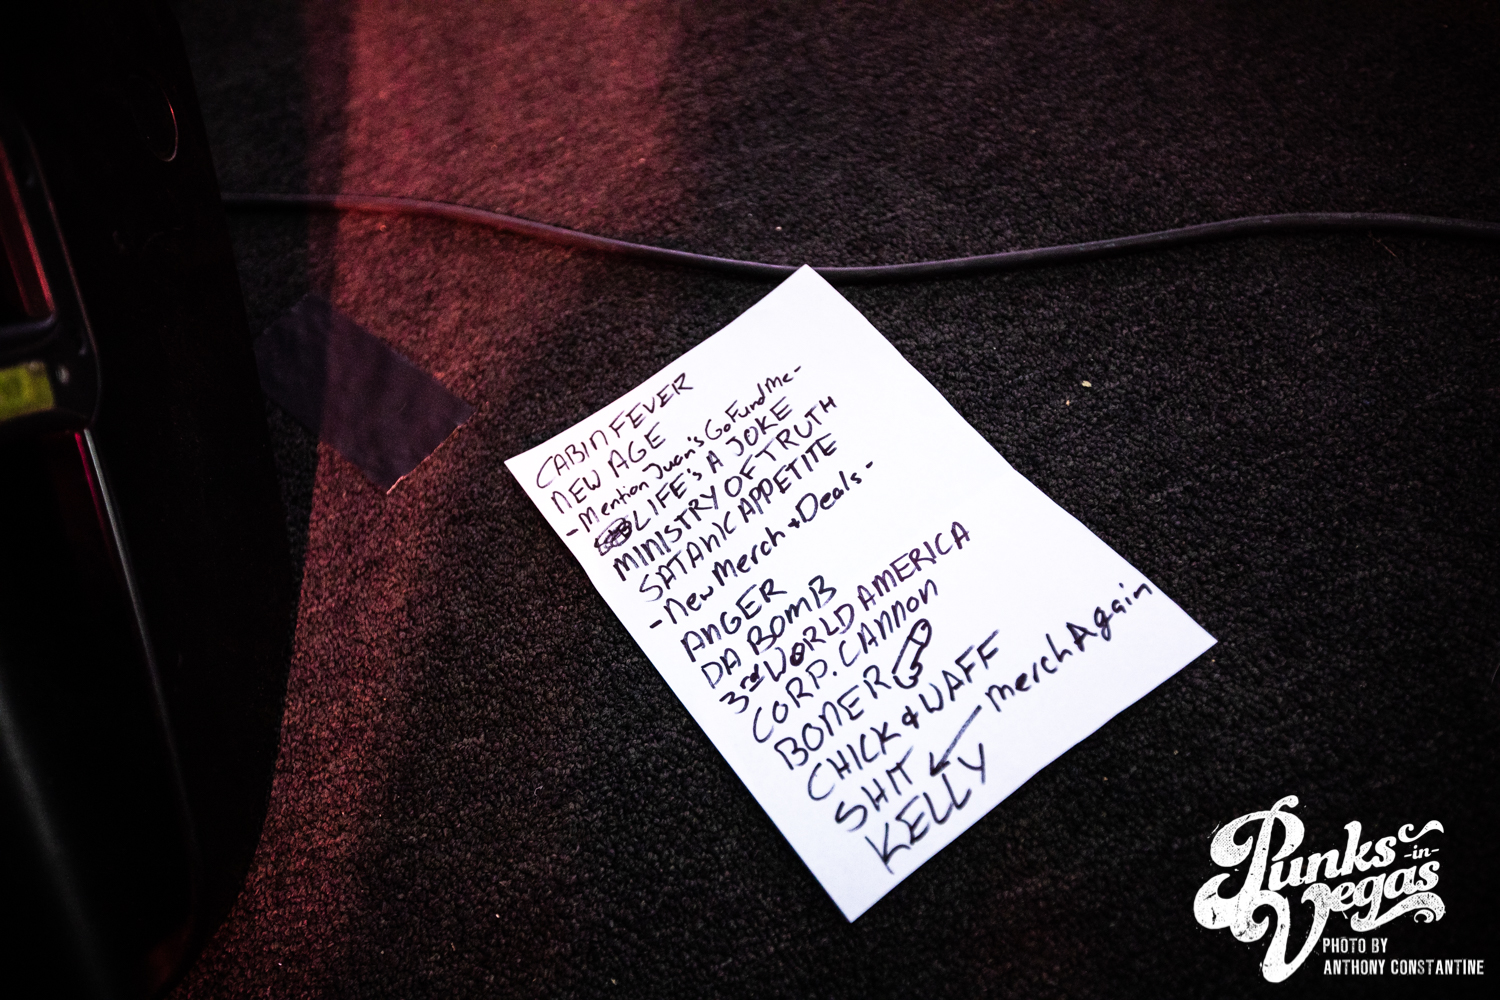 CABIN FEVER
NEW AGE
-Mention Juan's GoFundMe-
LIFE'S A JOKE
MINISTRY OF TRUTH
SATANIC APPETITE
-New Merch + Deals-
ANGER
DA BOMB
3rd WORLD AMERICA
CORP. CANNON
BONER
CHICK & WAFF
SHIT ← Merch Again
KELLY
Punks
-in-
Vegas
PHOTO BY
ANTHONY CONSTANTINE